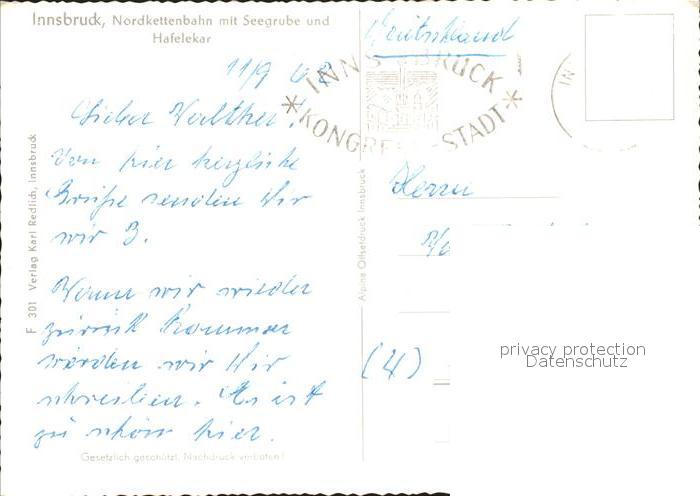 Innsbruck, Nordkettenbahn mit Seegrube und
Hafelekar
11/9
Lieber Walther!
Von hier herzliche
Grüße senden Dir
wir 3.
Wenn wir wieder
zurück kommen
werden wir Dir
schreiben. Es ist
zu schön hier.
Gesetzlich geschützt. Nachdruck verboten!
F 301 Verlag Karl Redlich, Innsbruck
Alpina Offsetdruck Innsbruck
Deutschland
INNSBRUCK
KONGRESS STADT
IN
Herrn
(4)
privacy protection
Datenschutz